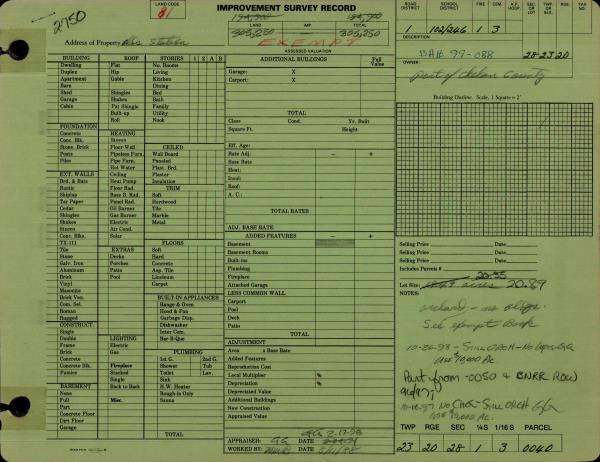 2750
LAND CODE
81
IMPROVEMENT SURVEY RECORD
LAND
IMP.
TOTAL
305,250
305,250
EXEMPT
ASSESSED VALUATION
ROAD DISTRICT
SCHOOL DISTRICT
FIRE
CEM.
A.P. HOSP.
SEC. OR LOT
TWP. OR BLK.
RGE
TAX NO.
1 102/246 1 3
DESCRIPTION
BA# 99-088 28-23-20
OWNER:
Port of Chelan County
Address of Property
Station
BUILDING
Dwelling
Duplex
Apartment
Barn
Shed
Garage
Cabin
ROOF
Flat
Hip
Gable
Shingles
Shakes
Pat Shingle
Built-up
Roll
STORIES 1 2 A B
No. Rooms
Living
Kitchen
Dining
Bed
Bath
Family
Utility
Nook
FOUNDATION
Concrete
Conc. Blk.
Stone, Brick
Posts
Piles
HEATING
Stoves
Floor-Wall
Pipeless Furn.
Pipe Furn.
Hot Water
Ceiling
Heat Pump
Floor Rad.
Base B. Rad.
Panel Rad.
Oil Burner
Gas Burner
Electric
Air Cond.
Solar
CEILED
Wall Board
Paneled
Plast. Brd.
Plaster
Insulation
TRIM
Soft
Hardwood
Tile
Marble
Metal
EXT. WALLS
Brd. & Bats
Rustic
Shiplap
Tar Paper
Cedar
Shingles
Shakes
Stucco
Conc. Blks.
TX-111
Tile
Stone
Galv. Iron
Aluminum
Brick
Vinyl
Masonite
Brick Ven.
Com. Sel.
Roman
Rugged
EXTRAS
Decks
Porches
Patio
Pool
FLOORS
Soft
Hard
Concrete
Asp. Tile
Linoleum
Carpet
BUILT-IN APPLIANCES
Range & Oven
Hood & Fan
Garbage Disp.
Dishwasher
Inter Com.
Bar-B-Que
CONSTRUCT.
Single
Double
Frame
Brick
Conc. Blk.
Concrete
Pumice
LIGHTING
Electric
Gas
Fireplace
Stacked
Single
Back to Back
Misc.
PLUMBING
1st G. 2nd G.
Shower Tub
Toilet Lav.
Sink
H.W. Heater
Rough-in Only
Sauna
BASEMENT
None
Full
Part
Concrete Floor
Dirt Floor
Garage
TOTAL
ADDITIONAL BUILDINGS
Full Value
Garage: X
Carport: X
TOTAL
Class Cond. Yr. Built
Square Ft. Height
Eff. Age:
Rate Adj. - +
Base Rate
Heat:
Insul:
Roof:
A. C.:
TOTAL RATES
ADJ. BASE RATE
ADDED FEATURES - +
Basement
Basement Rooms
Built-ins
Plumbing
Fireplace
Attached Garage
LESS COMMON WALL
Carport
Pool
Deck
Patio
TOTAL
ADJUSTMENT
Area x Base Rate
Added Features
Reproduction Cost
Local Multiplier %
Depreciation %
Depreciated Value
Additional Buildings
New Construction
Appraised Value
GG 2-17-98
APPRAISER: GG DATE
WORKED BY: DATE
Building Outline. Scale, 1 Square = 2'
Selling Price Date
Selling Price Date
Selling Price Date
Includes Parcels #
20.55
Lot Size: acres 20.89
NOTES:
orchard - no bldgs.
See exempt Book
10-26-98 - STILL ORCH - NO Imps GG
USE $10,000 AC
Part from -0050 & BNRR ROW
96/97;
10-16-97 NO CHG - STILL ORCH GG
TWP RGE SEC ¼S 1/16S PARCEL
23 20 28 1 3 0040